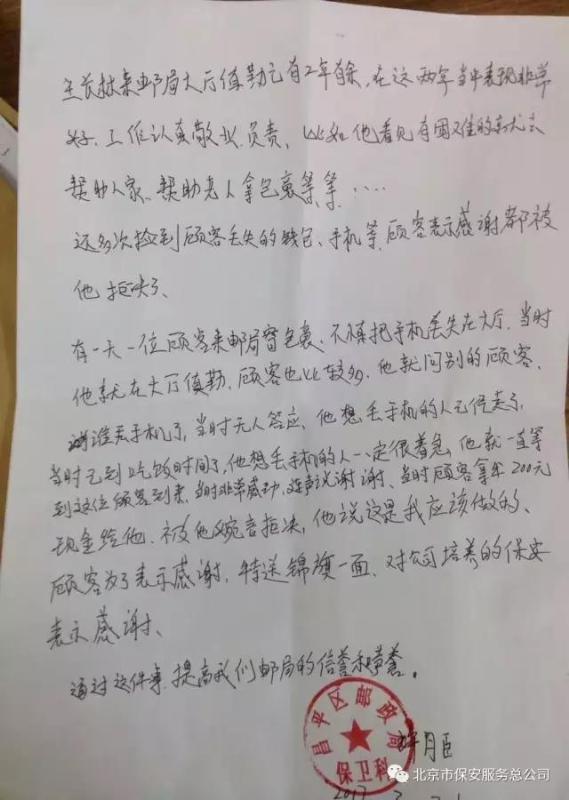 来邮局大厅值勤已有2年有余,在这两年当中表现非常
好、工作认真敬业、负责,比如他看见有困难的
帮助人家、帮助老人拿包裹等等.....
还多次捡到顾客丢失的钱包、手机等,顾客表示感谢都被
他拒决了、
有一天一位顾客来邮局寄包裹、不慎把手机丢失在大厅、当时
他就在大厅值勤、顾客也比较多、他就问别的顾客、
谁丢手机了,当时无人答应,他想丢手机的人已经走了,
当时已到吃饭时间了,他想丢手机的人一定很着急,他就一直等
到这位顾客到来,当时非常感动,连声说谢谢、当时顾客拿出200元
现金给他、被他婉言拒决,他说这是我应该做的、
顾客为了表示感谢,特送锦旗一面、对公司培养的保安
表示感谢、
通过这件事,提高我们邮局的信誉和荣誉。
昌平区邮政局
保卫科
月臣
2017
北京市保安服务总公司